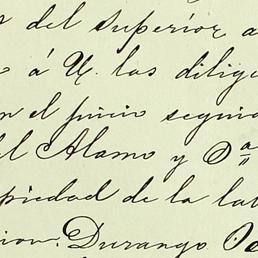 del Superior a
á U. las dilige
en el juicio segui
el Alamo y Da
piedad de la la
cion. Durango